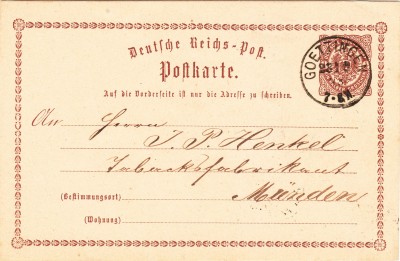 Deutsche Reichs-Post.
Postkarte.
GOETTINGEN
7-8V.
Auf die Vorderseite ist nur die Adresse zu schreiben.
An Herrn
J. P. Henkel
Tabacksfabrikant
(Bestimmungsort) Münden
(Wohnung)